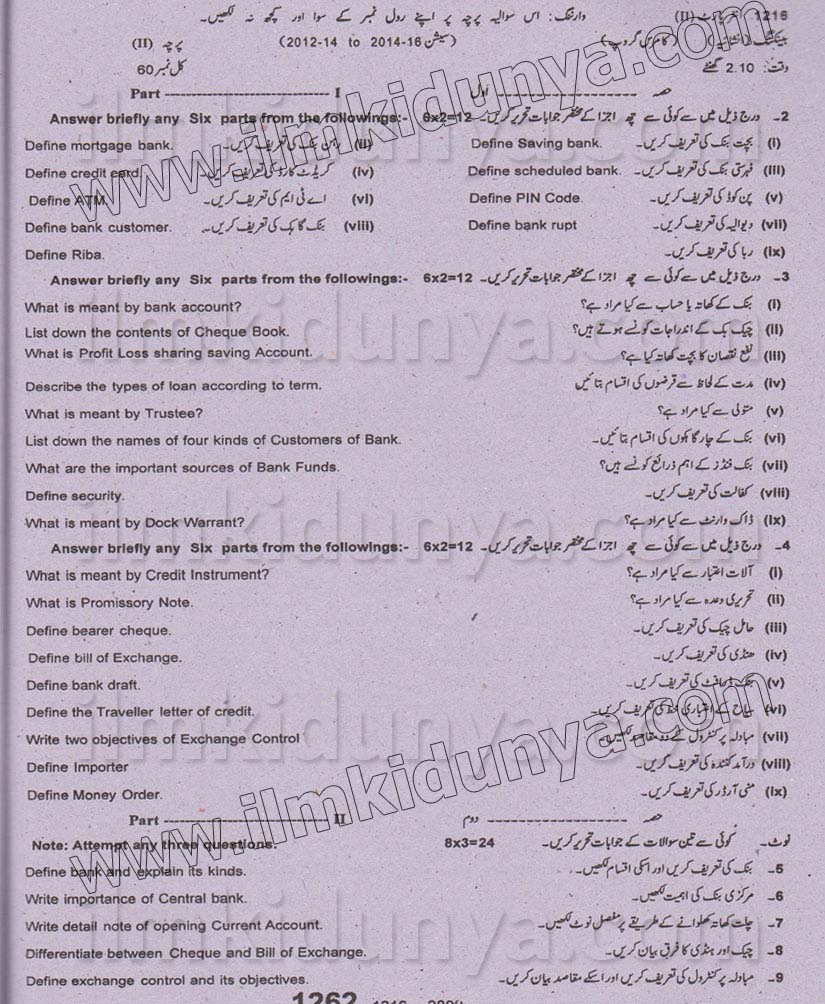 1216 انٹر پارٹ (II) وارننگ : اس سوالیہ پرچہ پر اپنے رول نمبر کے سوا اور کچھ نہ لکھیں۔
بینکنگ (انشائیہ) (کامرس گروپ) (سیشن 2014-16 to 2012-14) پرچہ (II)
وقت : 2.10 گھنٹے کل نمبر 60
Part ------------------------------ I حصہ -------------------- اول
Answer briefly any Six parts from the followings:- 6x2=12 2۔ درج ذیل میں سے کوئی سے چھ اجزا کے مختصر جوابات تحریر کریں۔
Define mortgage bank. (ii) رہن بنک کی تعریف کریں۔ Define Saving bank. (i) بچت بنک کی تعریف کریں۔
Define credit card. (iv) کریڈٹ کارڈ کی تعریف کریں۔ Define scheduled bank. (iii) فہرستی بنک کی تعریف کریں۔
Define ATM. (vi) اے ٹی ایم کی تعریف کریں۔ Define PIN Code. (v) پن کوڈ کی تعریف کریں۔
Define bank customer. (viii) بنک گاہک کی تعریف کریں۔ Define bank rupt (vii) دیوالیہ کی تعریف کریں۔
Define Riba. (ix) ربا کی تعریف کریں۔
Answer briefly any Six parts from the followings:- 6x2=12 3۔ درج ذیل میں سے کوئی سے چھ اجزا کے مختصر جوابات تحریر کریں۔
What is meant by bank account? (i) بنک کے کھاتہ یا حساب سے کیا مراد ہے؟
List down the contents of Cheque Book. (ii) چیک بک کے اندراجات کونسے ہوتے ہیں؟
What is Profit Loss sharing saving Account. (iii) نفع نقصان کا بچت کھاتہ کیا ہے؟
Describe the types of loan according to term. (iv) مدت کے لحاظ سے قرضوں کی اقسام بتائیں
What is meant by Trustee? (v) متولی سے کیا مراد ہے؟
List down the names of four kinds of Customers of Bank. (vi) بنک کے چار گاہکوں کی اقسام بتائیں۔
What are the important sources of Bank Funds. (vii) بنک فنڈز کے اہم ذرائع کونسے ہیں؟
Define security. (viii) کفالت کی تعریف کریں۔
What is meant by Dock Warrant? (ix) ڈاک وارنٹ سے کیا مراد ہے؟
Answer briefly any Six parts from the followings:- 6x2=12 4۔ درج ذیل میں سے کوئی سے چھ اجزا کے مختصر جوابات تحریر کریں۔
What is meant by Credit Instrument? (i) آلات اعتبار سے کیا مراد ہے؟
What is Promissory Note. (ii) تحریری وعدہ سے کیا مراد ہے؟
Define bearer cheque. (iii) حامل چیک کی تعریف کریں۔
Define bill of Exchange. (iv) ھنڈی کی تعریف کریں۔
Define bank draft. (v) بنک ڈرافٹ کی تعریف کریں۔
Define the Traveller letter of credit. (vi) سیاح کے اعتباری خط کی تعریف کریں۔
Write two objectives of Exchange Control (vii) مبادلہ پر کنٹرول کے دو مقاصد لکھیں۔
Define Importer (viii) درآمد کنندہ کی تعریف کریں۔
Define Money Order. (ix) منی آرڈر کی تعریف کریں۔
Part ------------------------------ II حصہ -------------------- دوم
Note: Attempt any three questions. 8x3=24 نوٹ۔ کوئی سے تین سوالات کے جوابات تحریر کریں۔
Define bank and explain its kinds. 5۔ بنک کی تعریف کریں اور اسکی اقسام لکھیں۔
Write importance of Central bank. 6۔ مرکزی بنک کی اہمیت لکھیں۔
Write detail note of opening Current Account. 7۔ چلت کھاتہ کھلوانے کے طریقے پر مفصل نوٹ لکھیں۔
Differentiate between Cheque and Bill of Exchange. 8۔ چیک اور ہنڈی کا فرق بیان کریں۔
Define exchange control and its objectives. 9۔ مبادلہ پر کنٹرول کی تعریف کریں اور اسکے مقاصد بیان کریں۔
1262
www.ilmkidunya.com
www.ilmkidunya.com